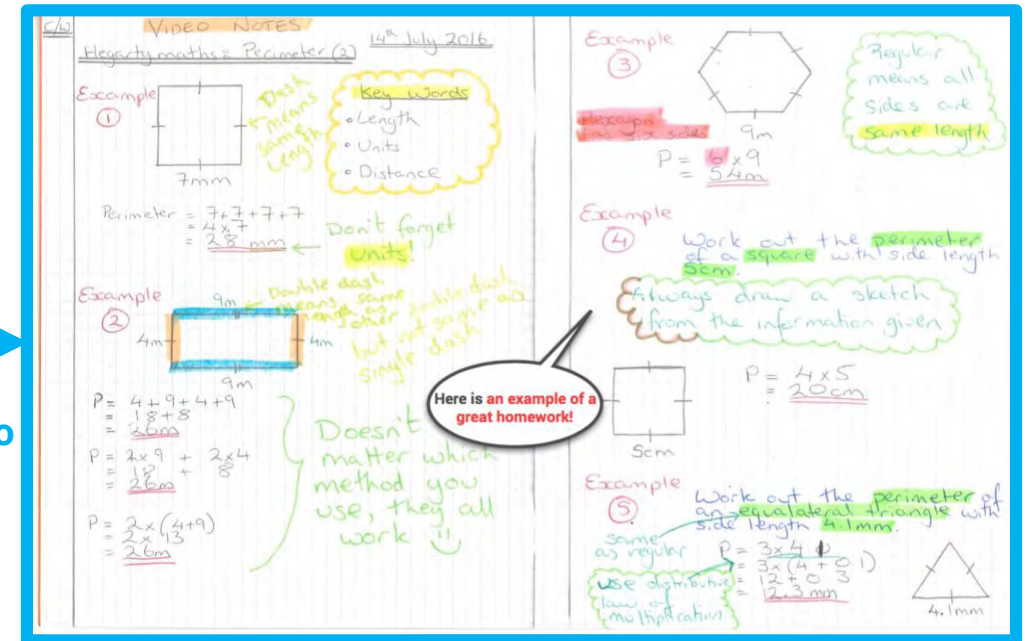 C/W
VIDEO NOTES
Hegartymaths: Perimeter (2)
14th July 2016
Example
1
Dash
means
same
length
7mm
Key Words
• Length
• Units
• Distance
Perimeter = 7+7+7+7
= 4x7
= 28 mm
Don't forget
Units!
Example
2
9m
4m
4m
9m
Double dash
means same
length as
other double dash
but not same as
single dash
P = 4+9+4+9
= 18+8
= 26m
P = 2x9 + 2x4
= 18 + 8
= 26m
P = 2x(4+9)
= 2x13
= 26m
Doesn't
matter which
method you
use, they all
work
o
Here is an example of a
great homework!
Example
3
Hexagon
has six sides
9m
P = 6x9
= 54m
Regular
means all
sides are
same length
Example
4
Work out the perimeter
of a square with side length
5cm.
Always draw a sketch
from the information given
5cm
P = 4x5
= 20cm
Example
5
Work out the perimeter of
an equalateral triangle with
side length 4.1mm.
same
as regular
use distributive
law of
multiplication
P = 3x4.1
= 3x(4+0.1)
= 12+0.3
= 12.3 mm
4.1mm